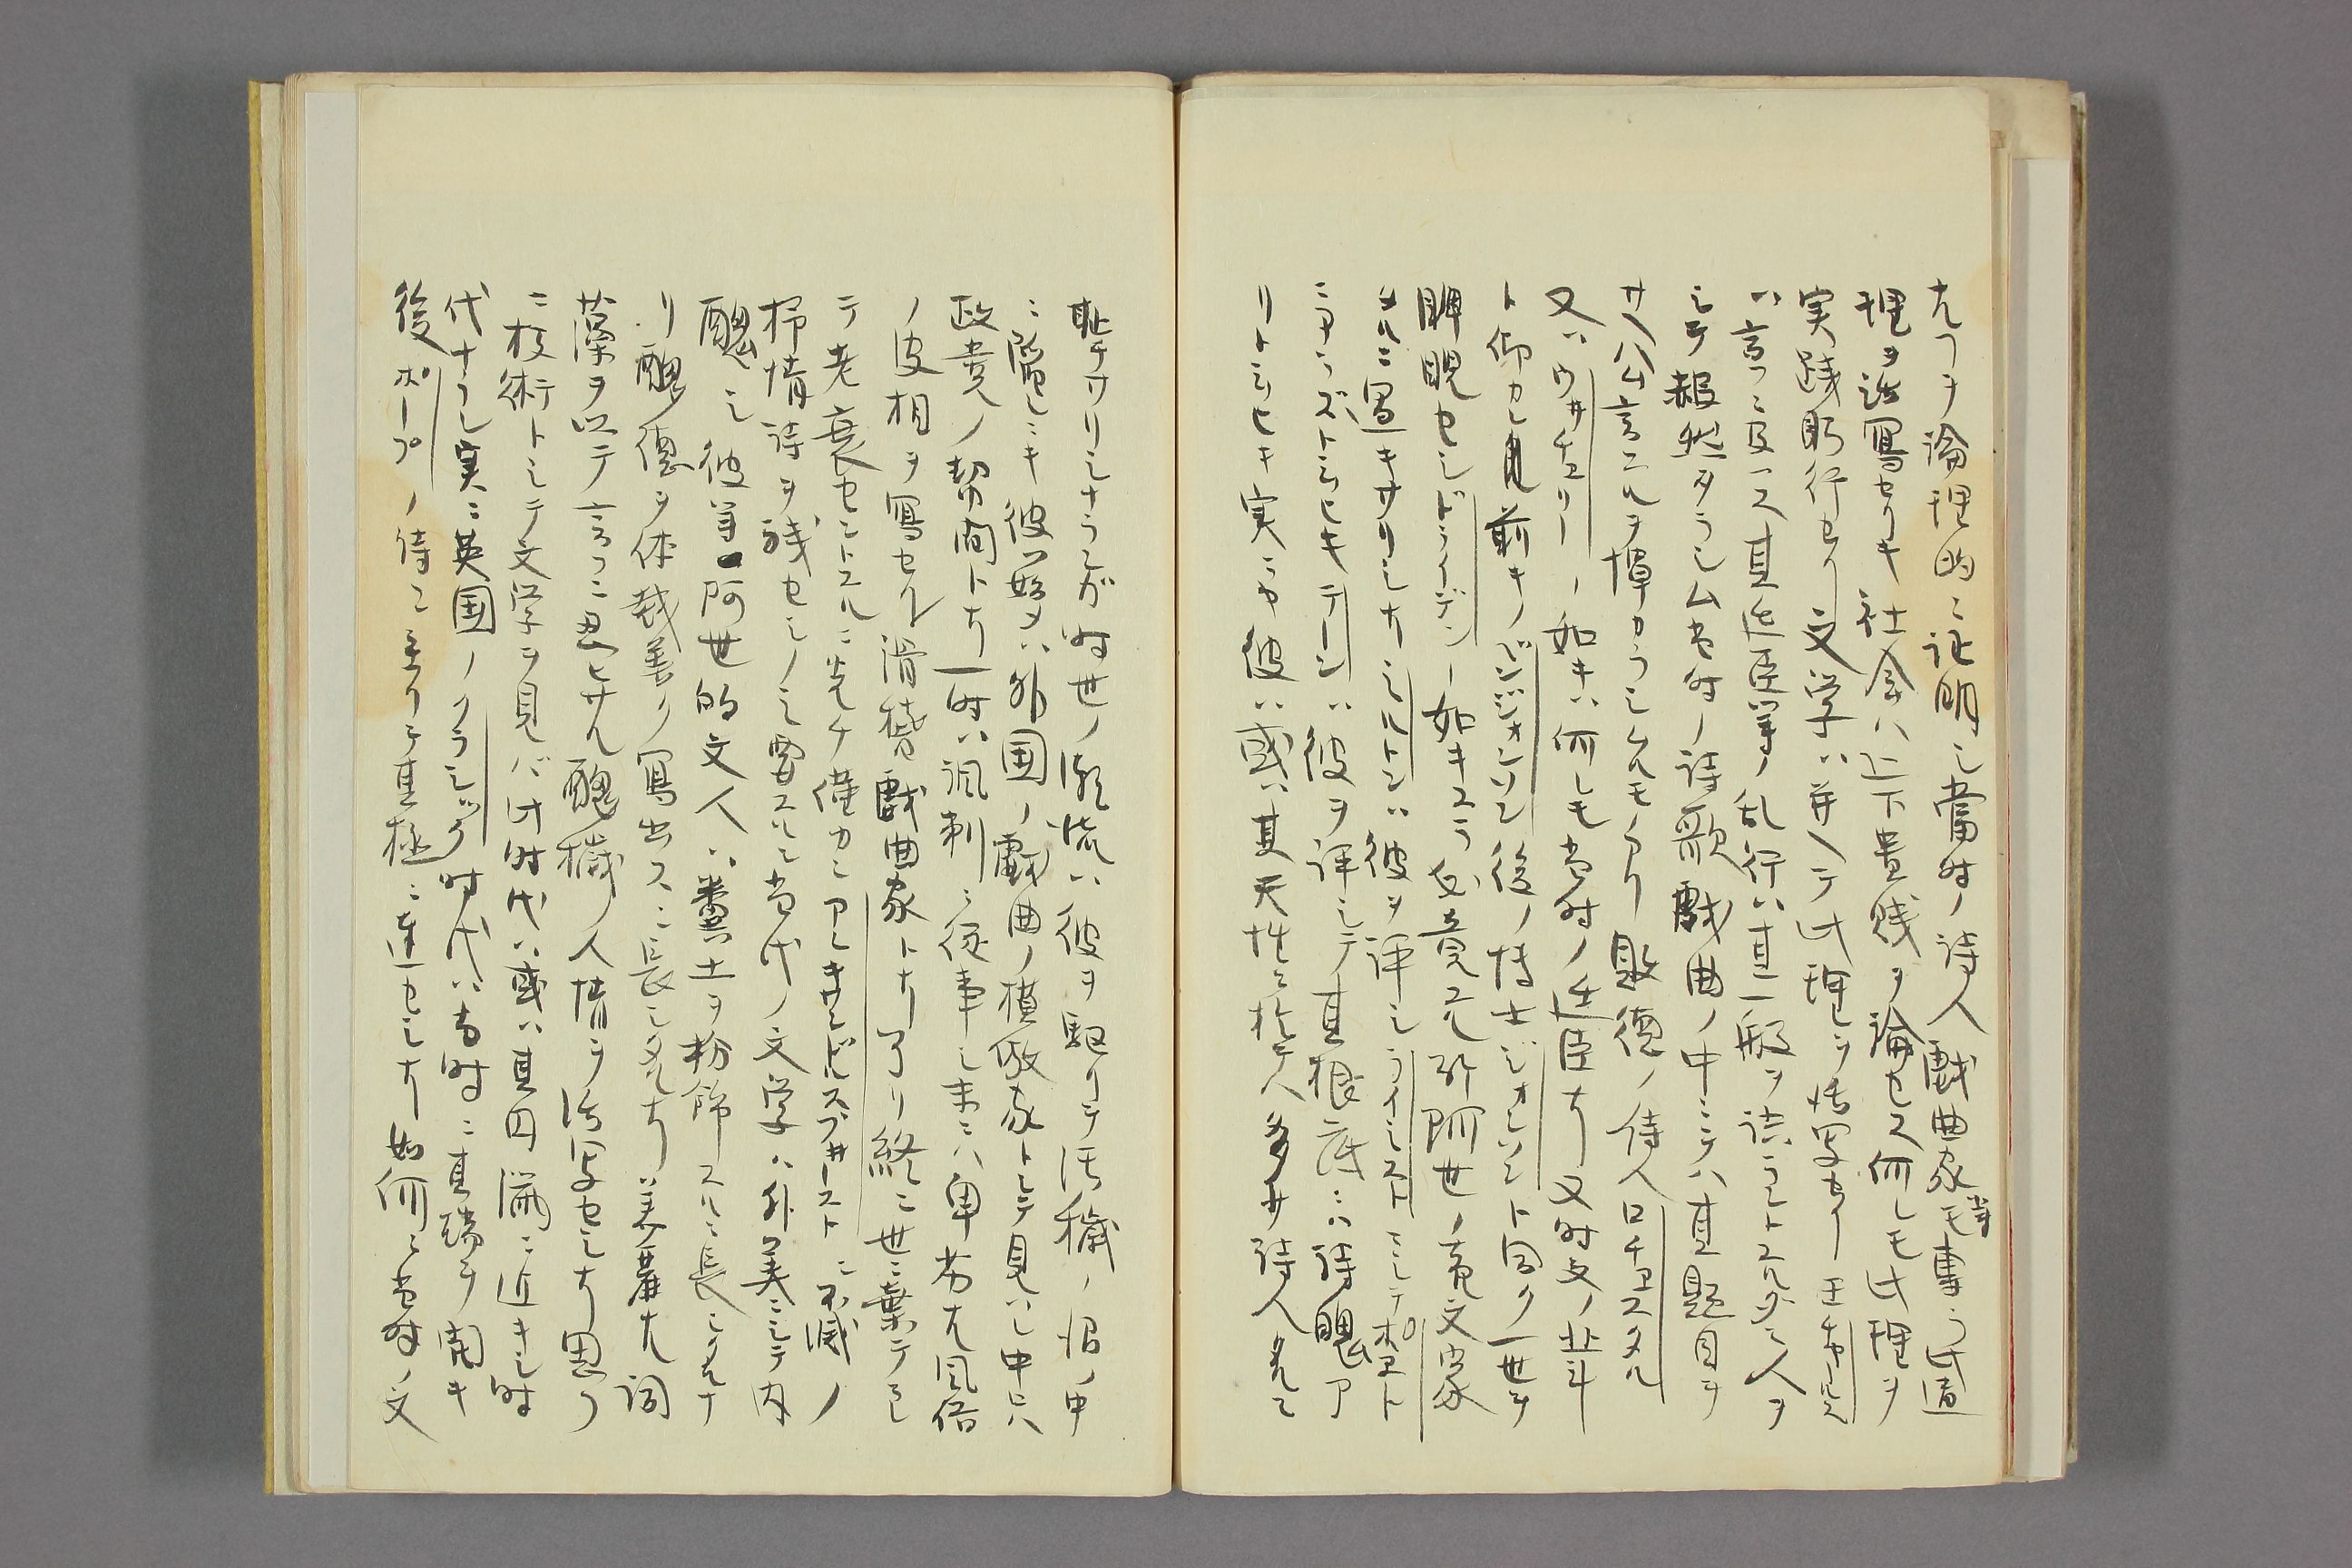 ナルヿヲ論理的ニ証明シ當時ノ詩人戯曲家等モ専ラ此道
理ヲ活寫セリキ社会ハ上下貴賤ヲ論セス何レモ此理ヲ
実践躬行セリ文学ハ并ヘテ此理ヲ活写セリ王チャールス
ハ言フニ及ハス其廷臣等ノ乱行ハ其一般ヲ読ラレトスルダニ人ヲ
シテ赧然タラシム当時ノ詩歌戯曲ノ中ニテハ其題目ヲ
サヘ公言スルヲ憚カラシムルモノアリ敗徳ノ侍人ロチェスタル
又ハウ井チェリーノ如キハ何レモ当時ノ廷臣ナリ又時文ノ北斗
ト仰カレ前キノベンジョンソン後ノ博士ジョンソント同ク一世ヲ
睥睨セシドライデンノ如キスラ畢竟スル所阿世ノ売文家
タルニ過キサリシナリミルトンハ彼ヲ評シライミストニシテポエト
ニアラズト云ヒキテーンハ彼ヲ評シテ其根底ニハ詩魂ア
リト云ヒキ実ニヤ彼ハ或ハ其天性ニ於テハ多少詩人タルニ
恥チサリシナランガ時世ノ潮流ハ彼ヲ駆リテ汚穢ノ沼ノ中
ニ陥レニキ彼ハ始メハ外国ノ戯曲ノ模倣家トシテ見ハレ中ニハ
政党ノ幇間トナリ一時ハ諷刺ニ従事シ末ニハ卑劣ナル風俗
ノ皮相ヲ寫セル滑稽戯曲家トナリ了リ終ニ世ニ棄テラレ
テ老衰セントスルニ先チ僅カニアレキサンドルスフ井ーストニ不滅ノ
抒情詩ヲ残セシノミ要スルニ当代ノ文学ハ外美ニシテ内
醜シ彼等阿世的文人ハ糞土ヲ粉飾スルニ長シタルナ
リ醜徳ヲ体裁善ク寫出スニ長シタルナリ美麗ナル詞
藻ヲ以テ言フニ忍ヒサル醜穢ノ人情ヲ活写セシナリ思フ
ニ技術トシテ文学ヲ見バ此時代ハ或ハ其円満ニ近キシ時
代ナラン実ニ英国ノクラシック時代ハ当時ニ其端ヲ開キ
後ポープノ侍ニ至リテ其極ニ達セシナリ如何ニ当時ノ文